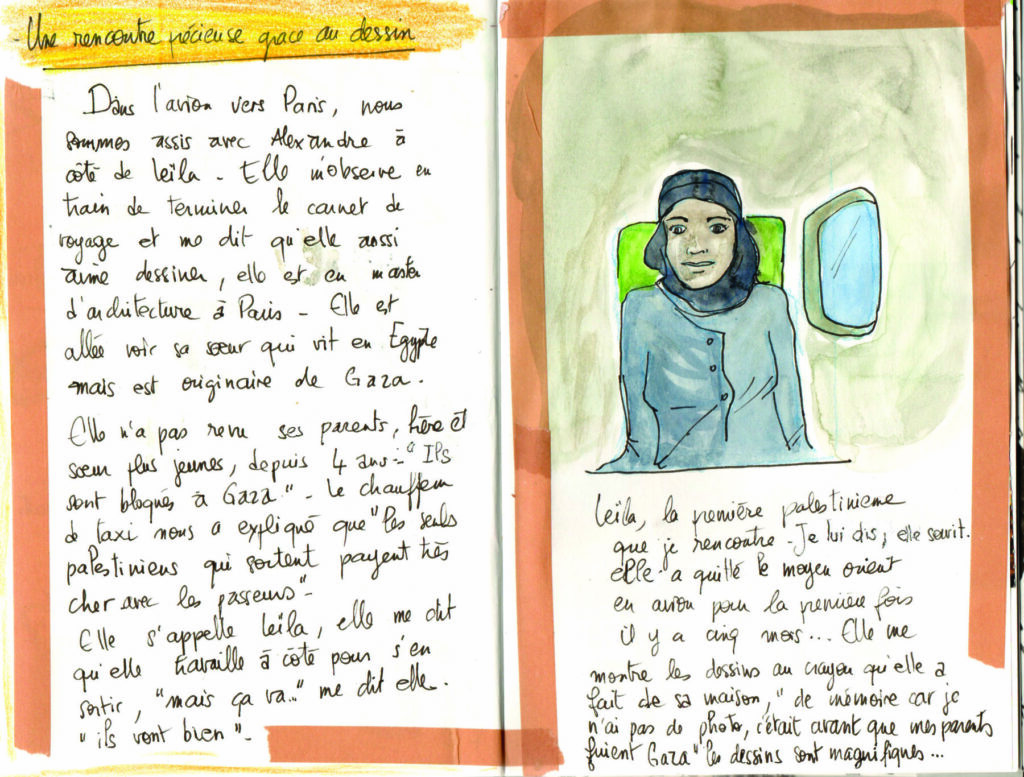 - Une rencontre précieuse grace au dessin
Dans l'avion vers Paris, nous
sommes assis avec Alexandre à
côté de Leïla - Elle m'observe en
train de terminer le carnet de
voyage et me dit qu'elle aussi
aime dessiner, elle est en master
d'architecture à Paris - Elle est
allée voir sa sœur qui vit en Egypte
mais est originaire de Gaza.
Elle n'a pas revu ses parents, frère et
sœur plus jeunes, depuis 4 ans - " Ils
sont bloqués à Gaza " - Le chauffeur
de taxi nous a expliqué que " les seuls
palestiniens qui sortent payent très
cher avec les passeurs " -
Elle s'appelle Leïla, elle me dit
qu'elle travaille à côté pour s'en
sortir, " mais ça va... " me dit elle.
" ils vont bien " -
Leïla, la première palestinienne
que je rencontre - Je lui dis, elle sourit.
elle a quitté le moyen orient
en avion pour la première fois
il y a cinq mois... Elle me
montre les dessins au crayon qu'elle a
fait de sa maison, " de mémoire car je
n'ai pas de photo, c'était avant que mes parents
fuient Gaza " les dessins sont magnifiques...